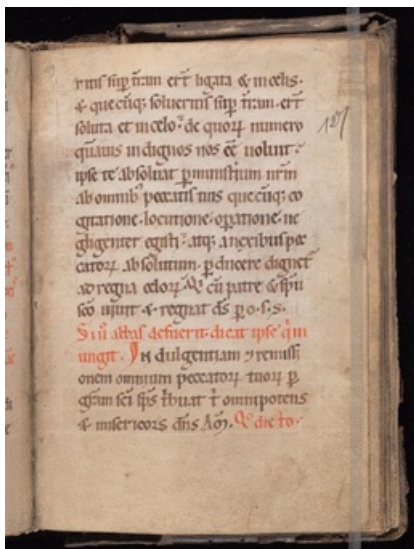 ritis sup̄ t̄ram erit̄ ligata & in celis.
& quecūq; solueritis sup̄ t̄ram. erit̄
soluta et in celo. de quoꝝ numero
quāuis indignos nos eē uoluit.
ipse te absoluat p̄ ministeriū nr̄m
ab omnib; peccatis tuis quecūq; co
gitatione. locutione. opatione. ne
gligenter egisti. atq; a nexibus pec
catoꝝ absolutum. pducere dignet̄
ad regna celoꝝ. Q̇ cū patre & sp̄u
sc̄o uiuit & regnat ds̄ p o. s. s.
Si ū abbas defuerit. dicat ipse q̇ in
ungit. Indulgentiam ⁊ remissi
onem omnium peccatoꝝ tuoꝝ p
gr̄am sc̄i sp̄s tbuat t̄ omnipotens
& misericors dn̄s Am̄.
127